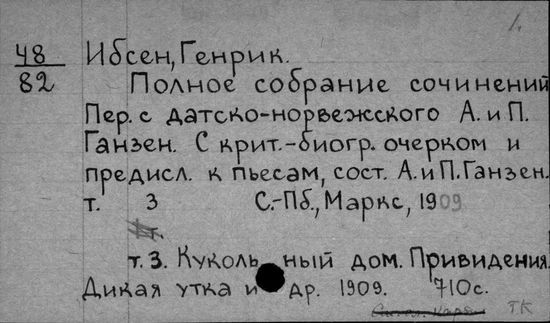 1.
48 Ибсен, Генрик.
82 Полное собрание сочинений
Пер. с датско-норвежского А. и П.
Ганзен. С крит.-биогр. очерком и
предисл. к пьесам, сост. А. и П. Ганзен.
т. 3 С.-Пб., Маркс, 1909
т.
т. 3. Кукольный дом. Привидения.
Дикая утка и др. 1909. 710с.
ТК